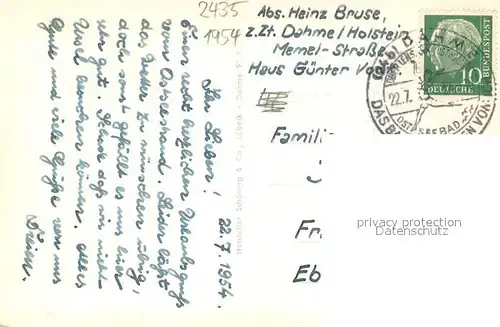 2435
1954
Abs. Heinz Bruse,
z.Zt. Dahme/Holstein
Memel-Straße
Haus Günter
22.7.1954.
Ihr Lieben!
Einen recht herzlichen Urlaubsgruß
vom Ostseestrand. Leider läßt
das Wetter zu wünschen übrig,
doch sonst gefällt es uns hier
sehr gut. Schade daß wir nicht
besuchen können. Alles
Gute und viele Grüße von uns
Hersteller Schöning & Co., Lübeck
DEUTSCHE
BUNDESPOST
10
22.7.
OSTSEEBAD
Famili
Fr
Eb
privacy protection